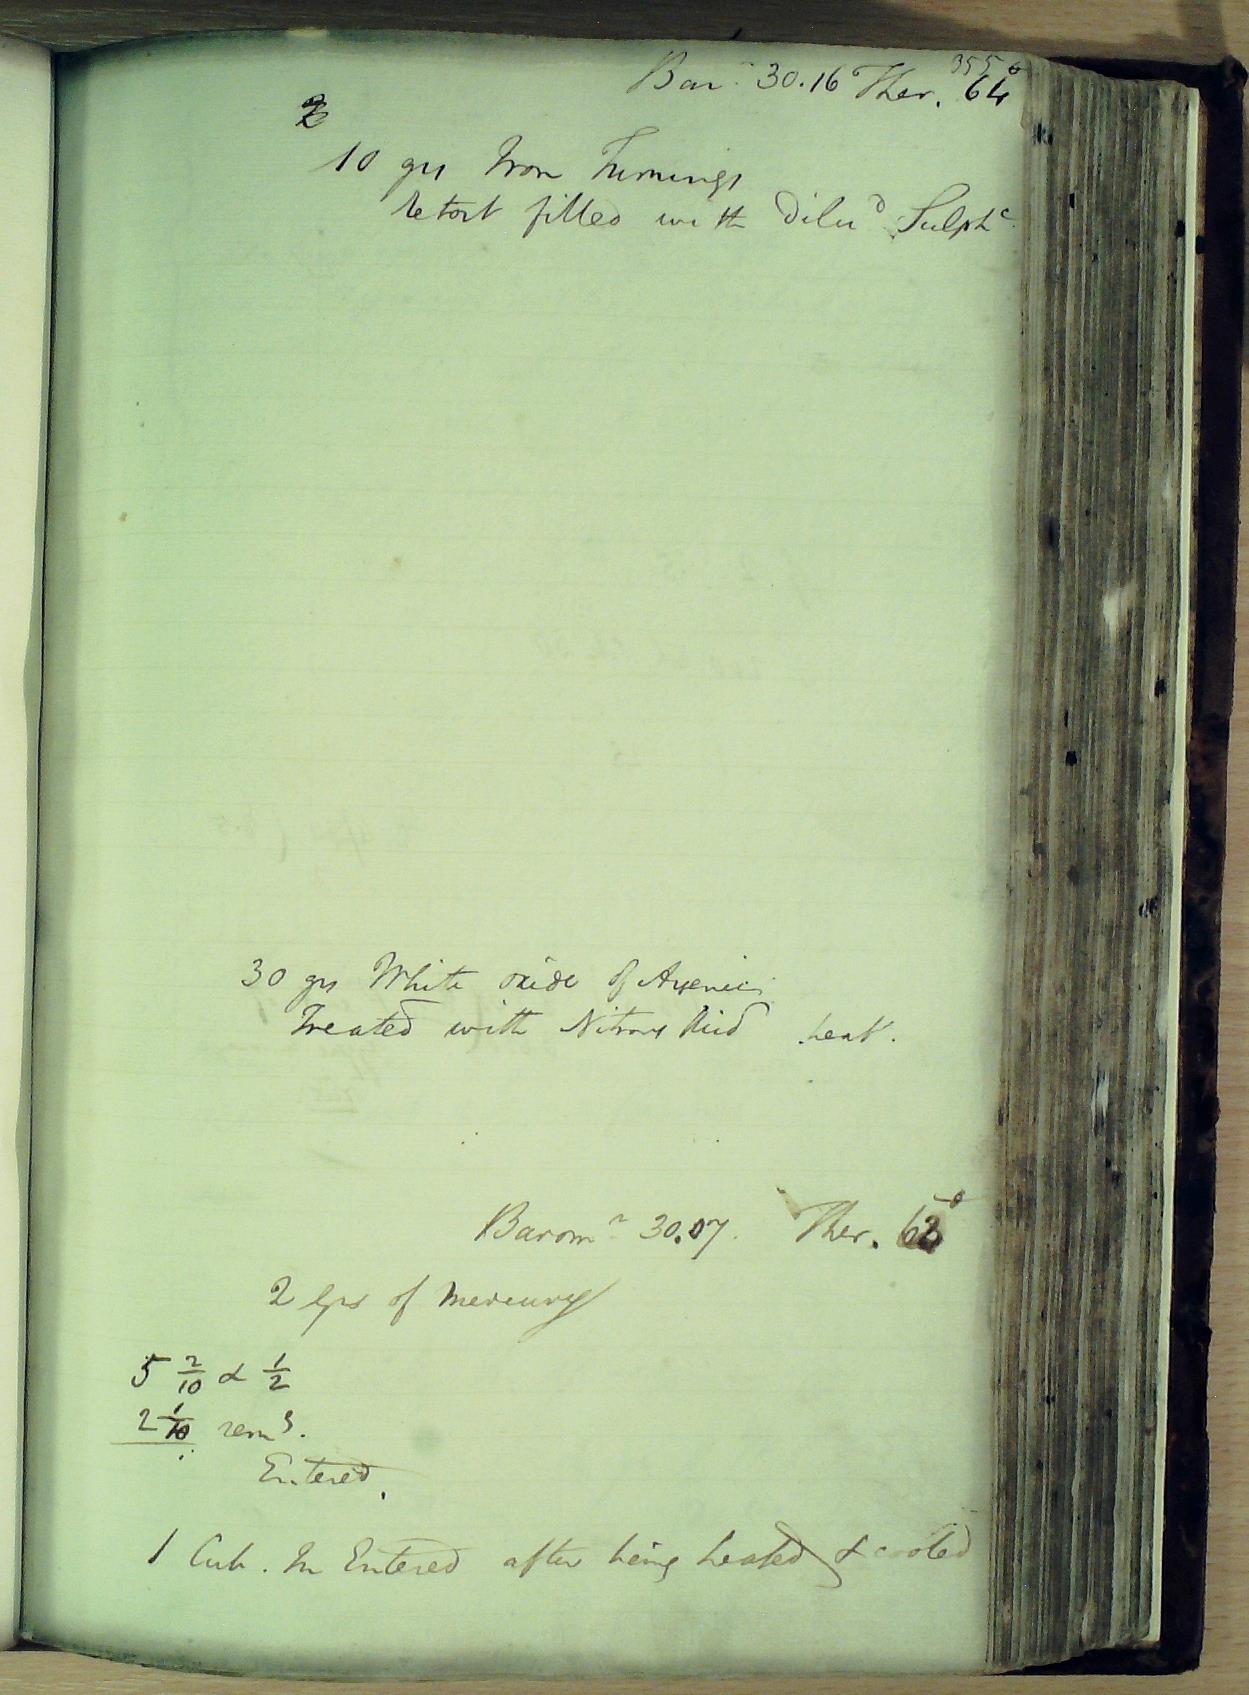 355
Bar. 30.16 Ther. 64°
10 grs Iron Turnings
retort filled with Dilud Sulphc
30 grs White oxide of Arsenic
Treated with Nitrous Acid heat.
Baromr 30.07. Ther. 63°
2 grs of Mercury
5 2/10 & 1/2
2 1/10 rems.
Entered.
1 Cub. In Entered after being heated & cooled